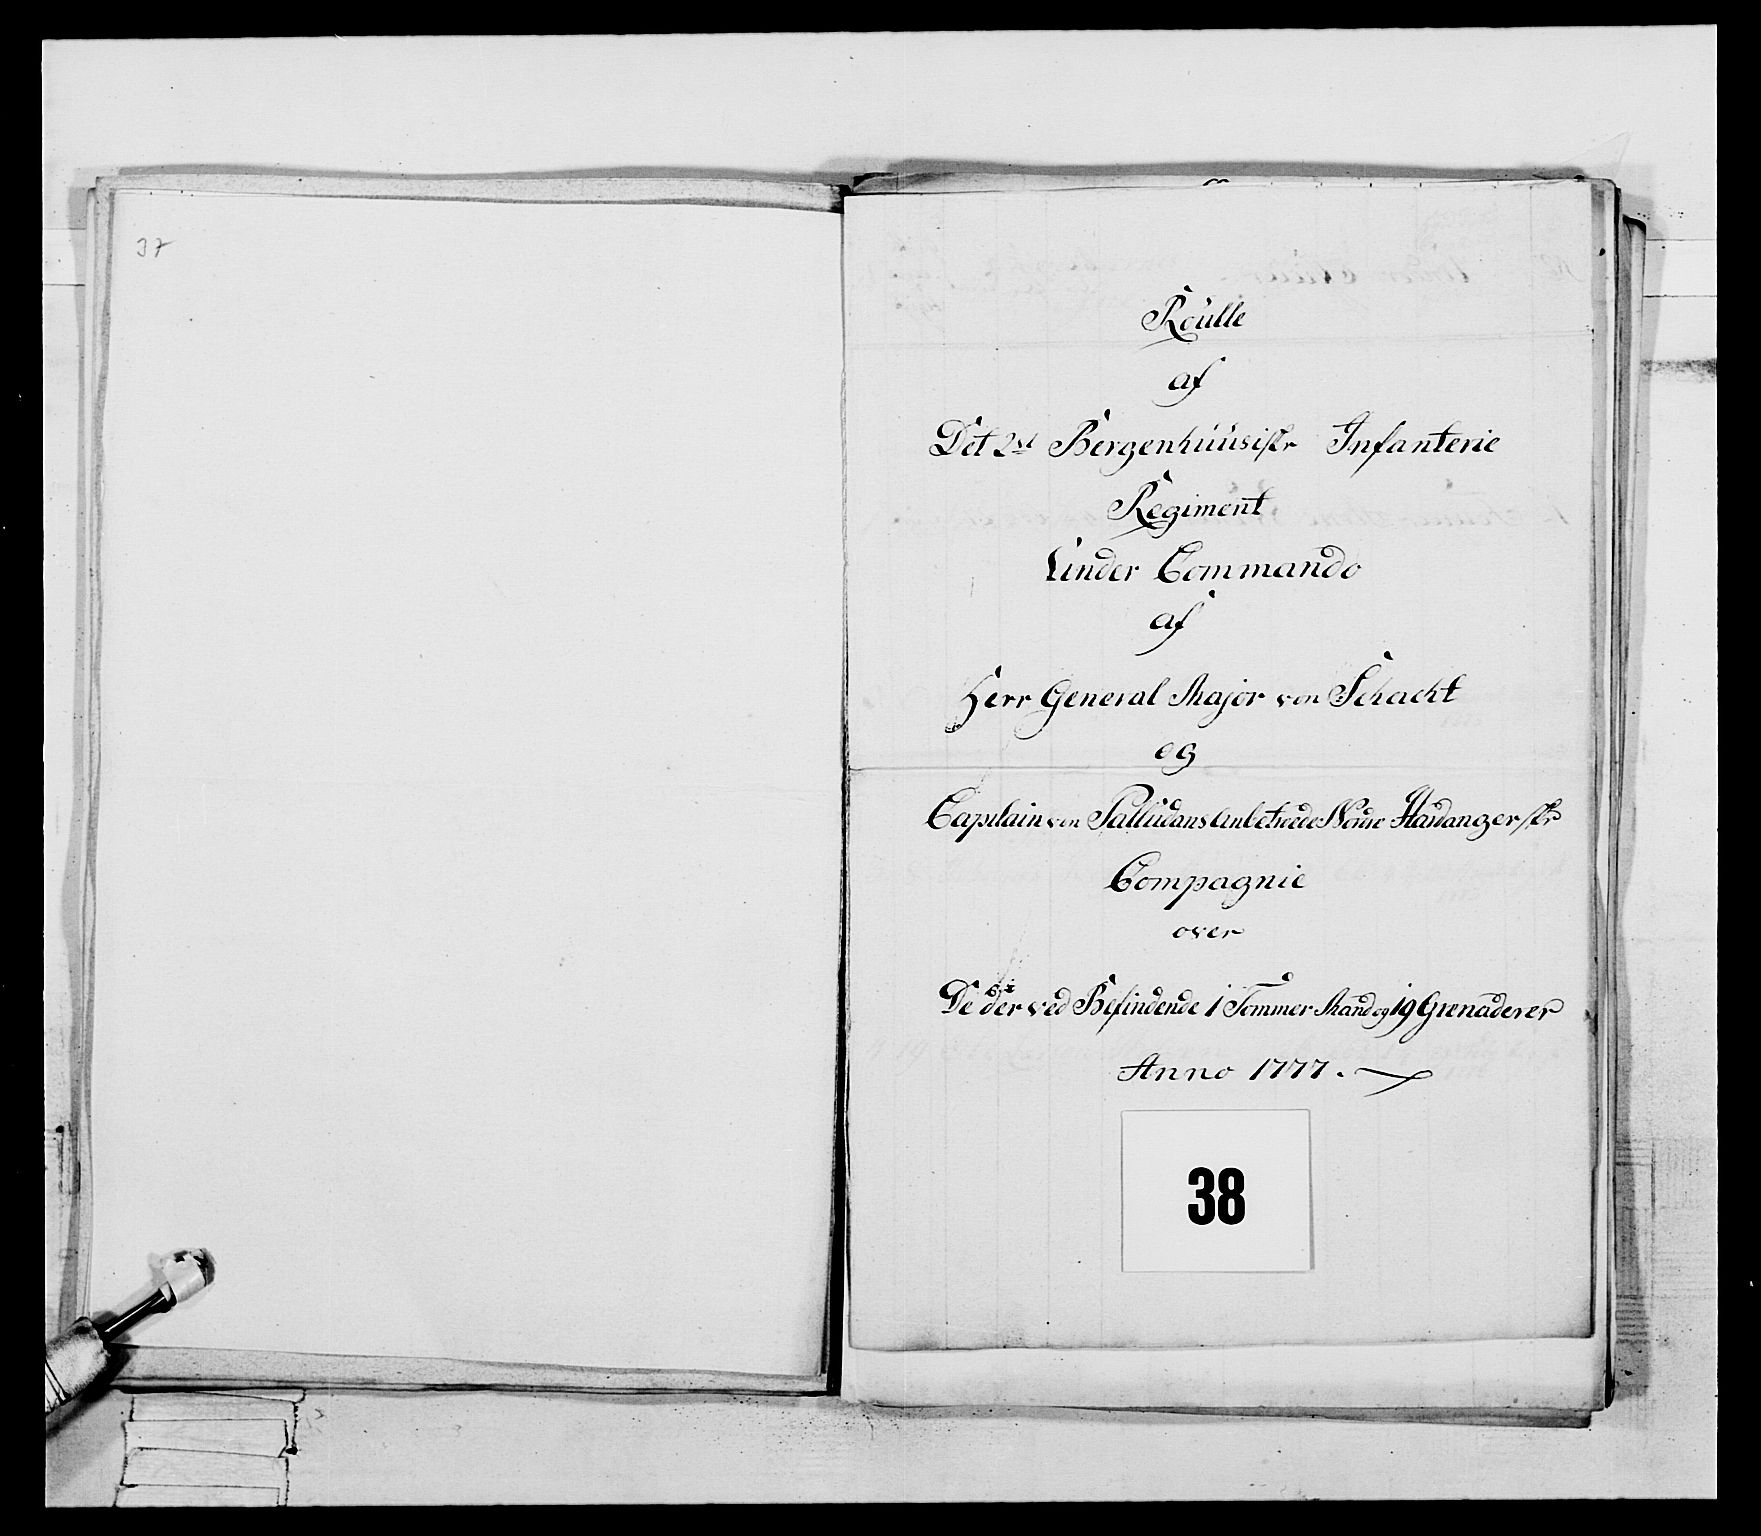 37
Roulle
af
Det 2det Bergenhuusiske Infanterie
Regiment
Under Commando
af
Herr General Major von Schacht
og
Capitain von Palludans Anbetroede Hardangerske
Compagnie
over
De der ved Befindende 1 Tommer Mand og 19 Grenaderer
Anno 1777.
38